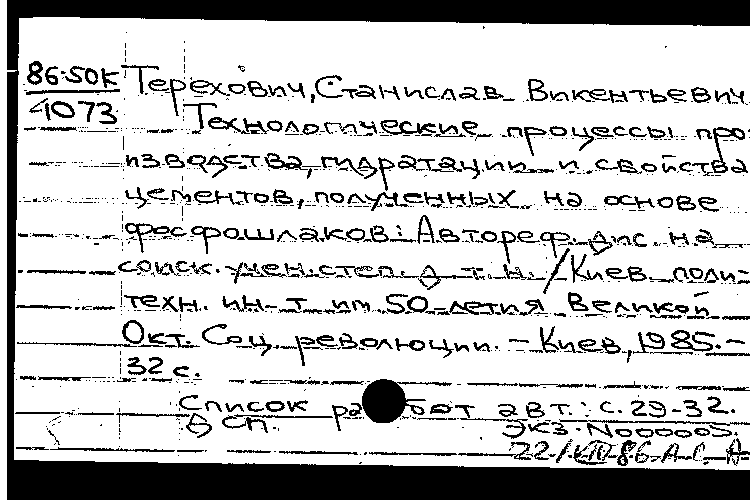 86-50К Терехович, Станислав Викентьевич
4073 Технологические процессы про-
изводства, гидратации и свойства
цементов, полученных на основе
фосфошлаков: Автореф. дис. на
соиск. учен. степ. д. т. н. / Киев. поли-
техн. ин-т им. 50-летия Великой
Окт. Соц. революции. - Киев, 1985. -
32 с.
Список работ авт.: с. 29-32.
В сп. ЭКЗ. N000005.